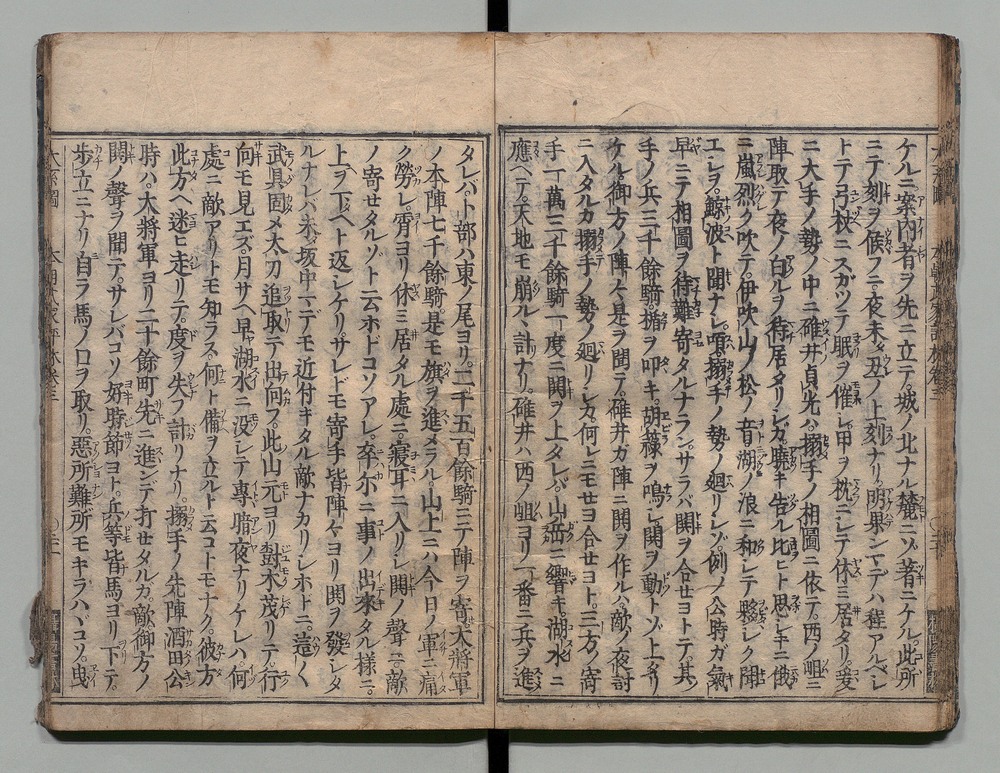 ケルニ案内者ヲ先ニ立テ。城ノ北ナル麓ニゾ著ニケル。此所
ニテ刻ヲ候フニ。夜未ダ丑ノ上刻ナリ。明果ンマデハ程アルベシ
トテ弓杖ニスガツテ眠ヲ催シ。甲ヲ枕ニシテ休ミ居タリ。爰
ニ大手ノ勢ノ中ニ碓井貞光。搦手ノ相圖ニ依テ。西ノ岨ニ
陣取テ夜ノ白ルヲ待居タリシガ。曉キ告ル比ヒト思シキニ俄
ニ嵐烈ク吹テ。伊吹山ヲ松ノ音。湖ノ浪ニ和シテ夥シク聞
エシヲ。鯨波ト聞ナシ。嗔搦手ノ勢ノ廻リシゾ。例ノ公時ガ氣
早ニテ相圖ヲ待難寄タルナラン。サラバ鬨ヲ合セヨトテ其
手ノ兵三千餘騎楯ヲ叩キ。胡簶ヲ鳴シ鬨ヲ動トゾ上タリ
ケル。御方ノ陣々是ヲ聞テ。碓井ガ陣ニ鬨ヲ作ルハ。敵ノ夜討
ニ入タルカ搦手ノ勢ノ廻リシカ。何レニモセヨ合セヨト。三方ノ寄
手一萬三千餘騎一度ニ鬨ヲ上タレバ。山岳ニ響キ。湖水ニ
應ヘテ。天地モ崩ルヽ計ナリ。碓井ハ西ノ岨ヨリ一番ニ兵ヲ進
タレバ卜部ハ東ノ尾ヨリ。二千五百餘騎ニテ陣ヲ寄。大將軍
ノ本陣七千餘騎。是モ旗ヲ進メラル。山上ニハ今日ノ軍ニ痛
ク勞レ霄ヨリ休ミ居タル處ニ。寢耳ニ入リシ鬨ノ聲ニ。敵
ノ寄セタルゾト云ホドコソアレ。卒尓ニ事ノ出來タル樣ニ。
上ヲ下ヘト返シケリ。サレドモ寄手皆陣々ヨリ鬨ヲ發シタ
ルナレバ未ダ坂中マデモ近付キタル敵ナカリシホドニ。這々
武具固メ太刀追取テ出向フ。此山元ヨリ對木茂リテ。行
向モ見エズ。月サヘ早ヤ湖水ニ没シテ專暗夜ナリケレハ。何
處ニ敵アリトモ知ラス。何ト備ヲ立ルト云コトモナク。彼方
此方ヘ迷ヒ走リテ。度ヲ失フ計リナリ。搦手ノ先陣酒田公
時ハ。大將軍ヨリ二十餘町先ニ進ンデ打セタルカ。敵御方ノ
鬨ノ聲ヲ聞テ。サレバコソ好時節ヨト。兵等皆馬ヨリ下テ。
歩立ニナリ自ラ馬ノ口ヲ取リ。惡所難所モキラハゞコソ。曳